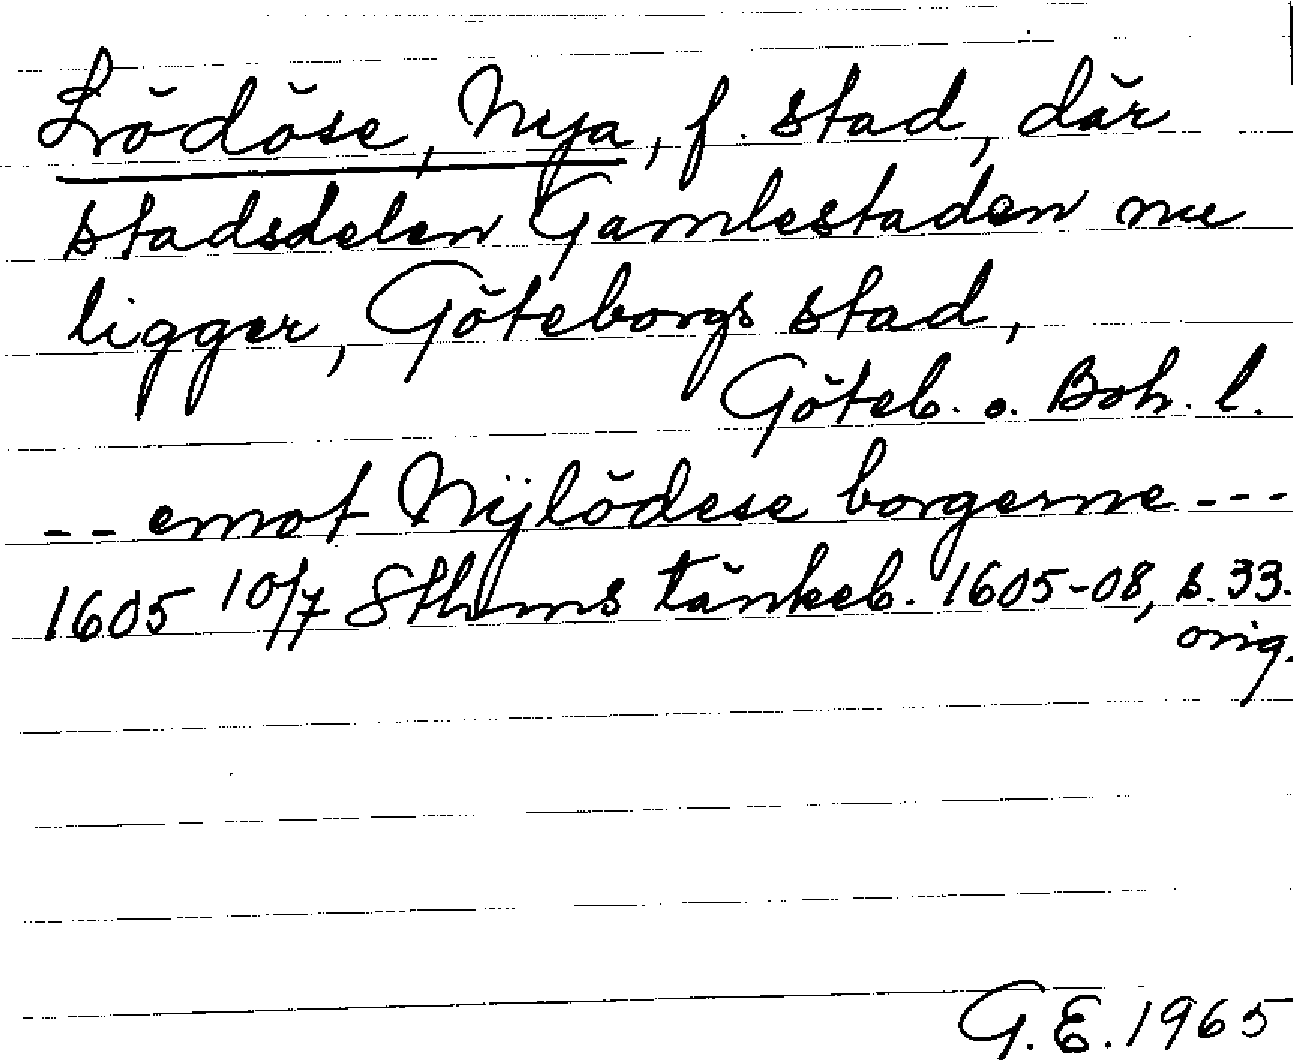 Lödöse, Nya, f. stad, där
stadsdelen Gamlestaden nu
ligger, Göteborgs stad,
Göteb. o. Boh. l.
-- emot Nÿlödese borgerne ---
1605 10/7 Sthms tänkeb. 1605-08, s. 33.
orig.
G.E. 1965